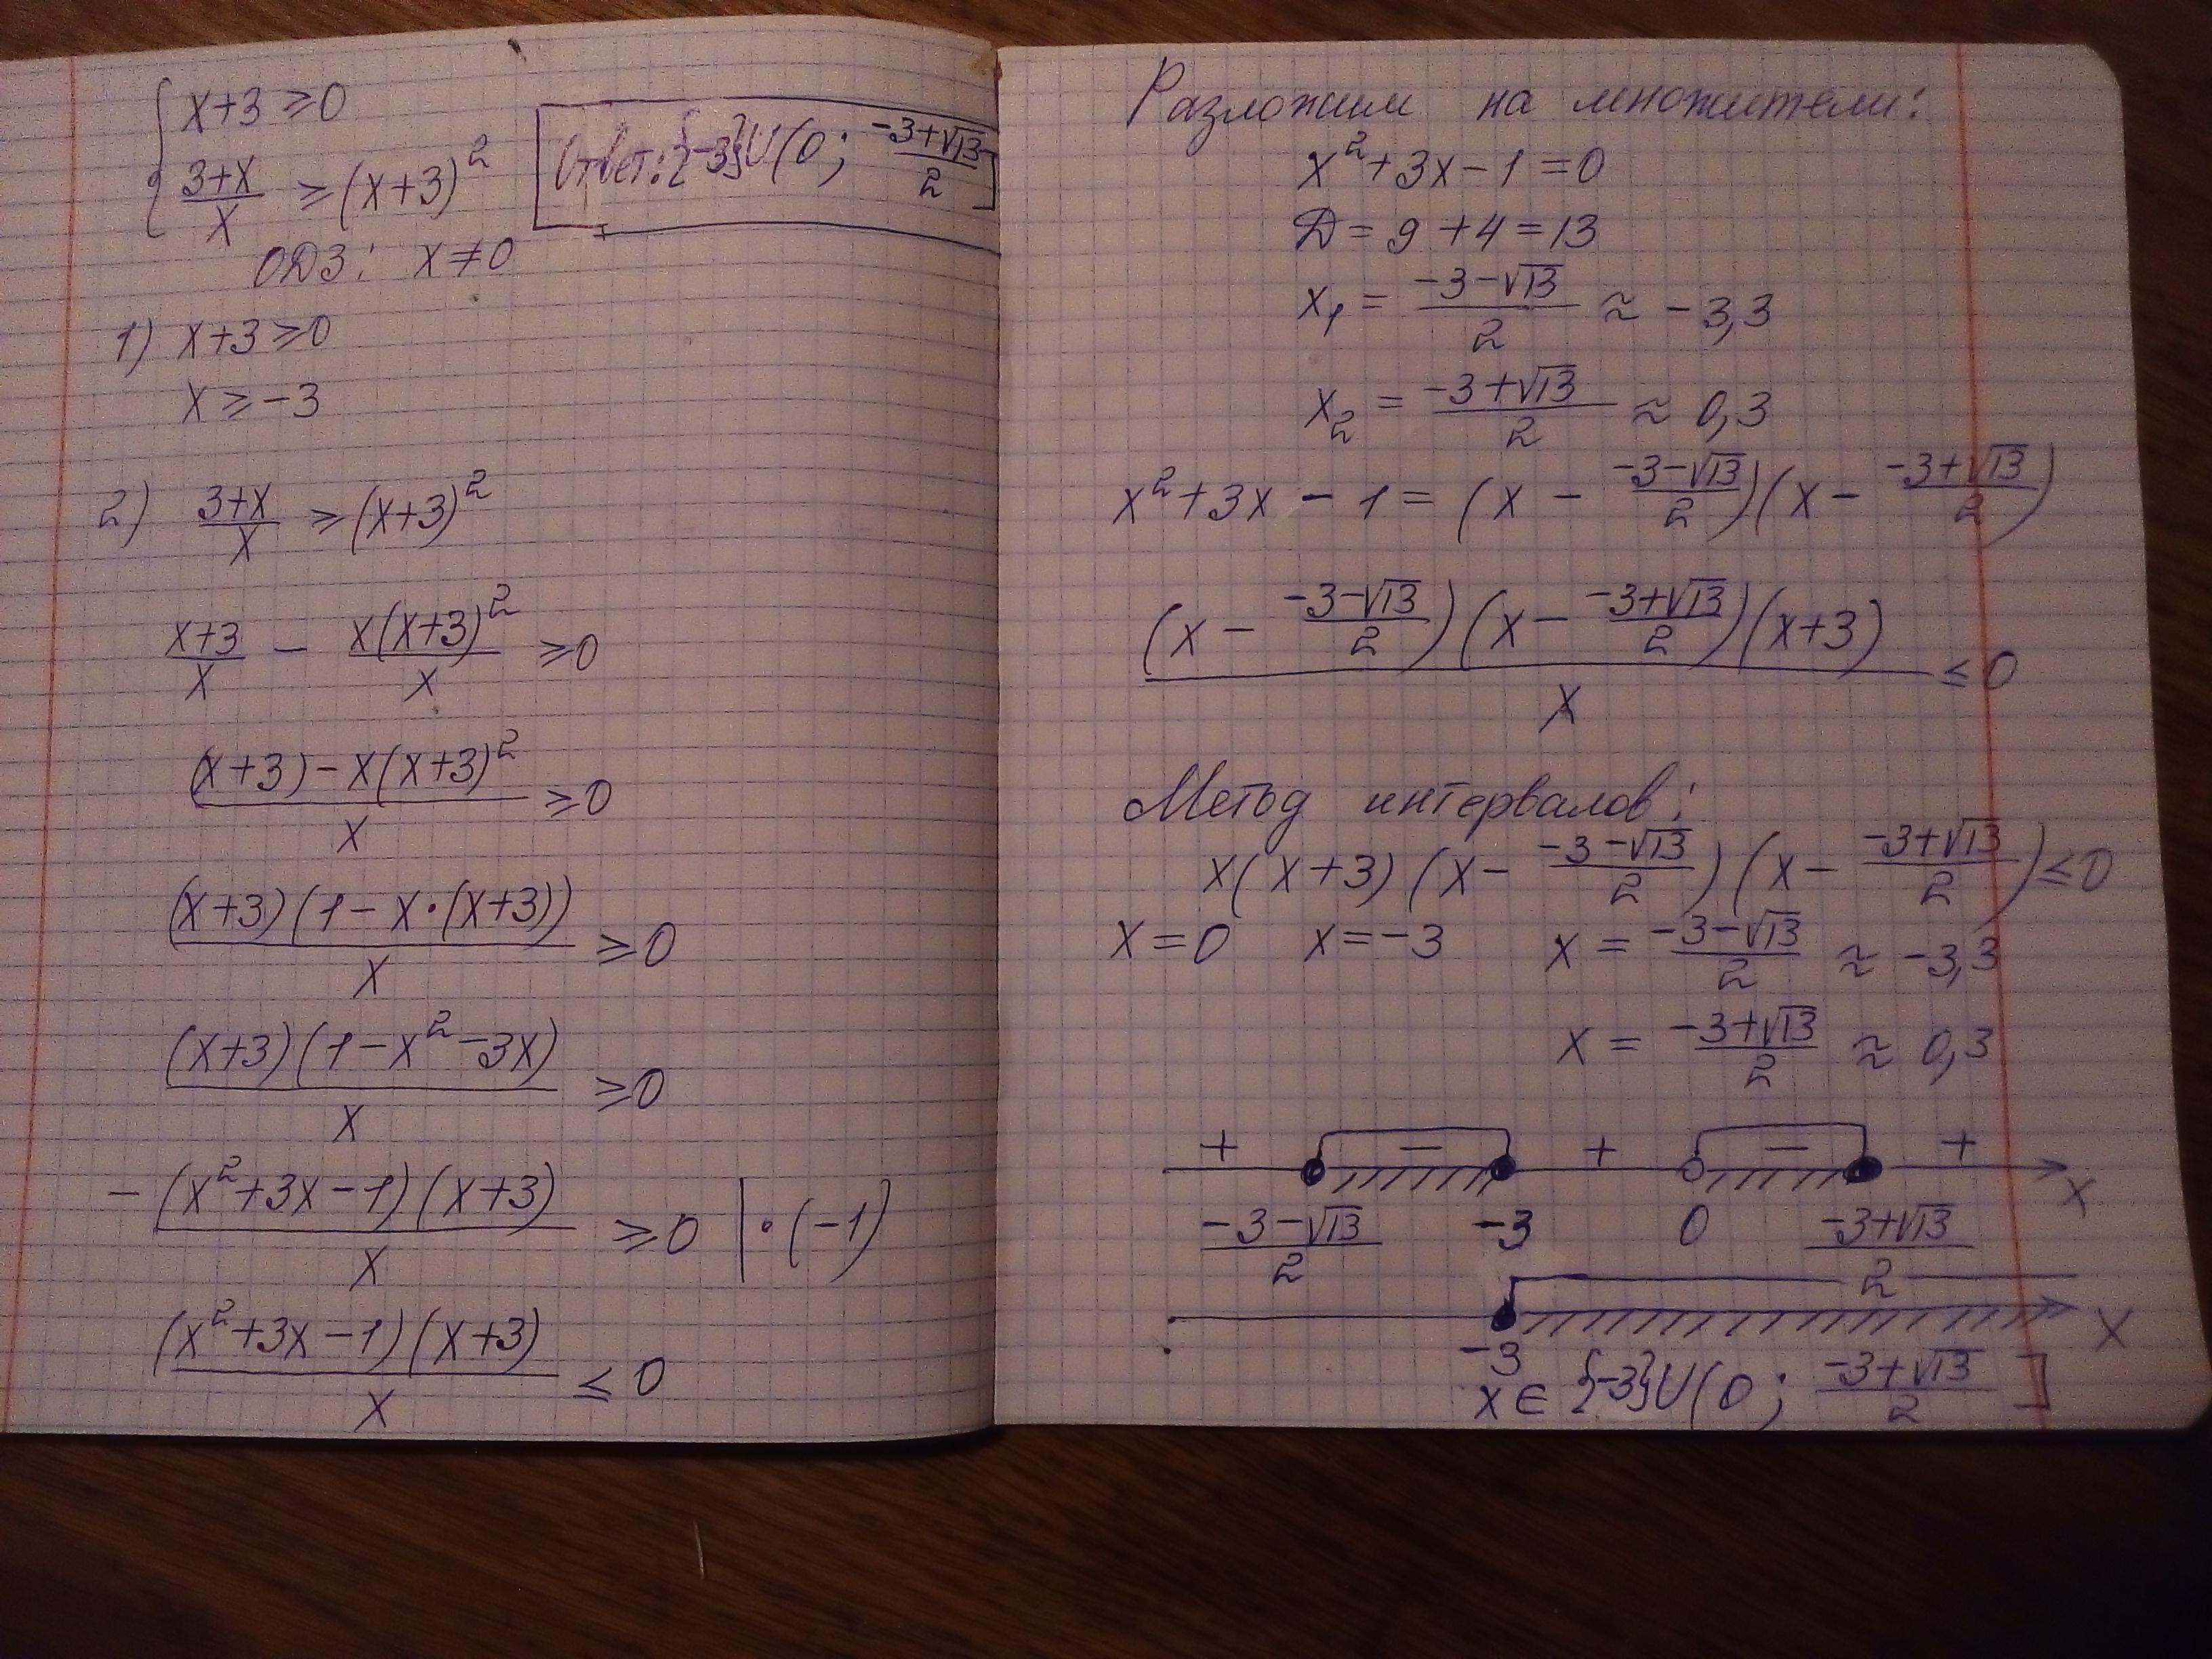 { x+3 ≥ 0
{ (3+x)/x ≥ (x+3)²
Ответ: {-3}∪(0; (-3+√13)/2]
ОДЗ: x ≠ 0
1) x+3 ≥ 0
x ≥ -3
2) (3+x)/x ≥ (x+3)²
(x+3)/x - x(x+3)²/x ≥ 0
((x+3) - x(x+3)²)/x ≥ 0
(x+3)(1-x·(x+3))/x ≥ 0
(x+3)(1-x²-3x)/x ≥ 0
- (x²+3x-1)(x+3)/x ≥ 0 | ·(-1)
(x²+3x-1)(x+3)/x ≤ 0
Разложим на множители:
x²+3x-1=0
D = 9+4=13
x₁ = (-3-√13)/2 ≈ -3,3
x₂ = (-3+√13)/2 ≈ 0,3
x²+3x-1 = (x - (-3-√13)/2)(x - (-3+√13)/2)
(x - (-3-√13)/2)(x - (-3+√13)/2)(x+3)/x ≤ 0
Метод интервалов:
x(x+3)(x - (-3-√13)/2)(x - (-3+√13)/2) ≤ 0
x=0 x=-3 x = (-3-√13)/2 ≈ -3,3
x = (-3+√13)/2 ≈ 0,3
+ - + - + x
(-3-√13)/2 -3 0 (-3+√13)/2
-3 x
x ∈ {-3}∪(0; (-3+√13)/2]